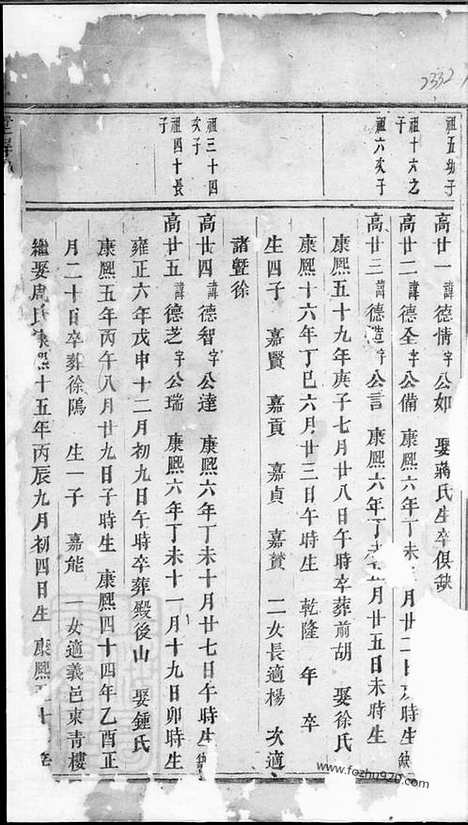 2332
祖五幼子
高廿一諱德情字公如 娶蔣氏生卒俱缺
祖十六之子
高廿二諱德全字公備 康熙六年丁未 月廿二日 時生缺
祖六次子
高廿三諱德造字公言 康熙六年丁 月廿五日未時生
康熙五十九年庚子七月廿八日午時卒葬前胡 娶徐氏
康熙十六年丁巳六月廿三日午時生 乾隆 年 卒
生四子 嘉賢 嘉貢 嘉貞 嘉贊 二女長適楊 次適
諸暨徐
祖三十四次子
高廿四諱德智字公達 康熙六年丁未十月廿七日午時生
祖四十長子
高廿五諱德芝字公瑞 康熙六年丁未十一月十九日卯時生
雍正六年戊申十二月初九日午時卒葬殿後山 娶鍾氏
康熙五年丙午八月廿九日子時生 康熙四十四年乙酉正
月二十日卒葬徐塢 生一子 嘉能 一女適義邑東青樓
繼娶周氏康熙十五年丙辰九月初四日生 康熙
www.fozhu920.com